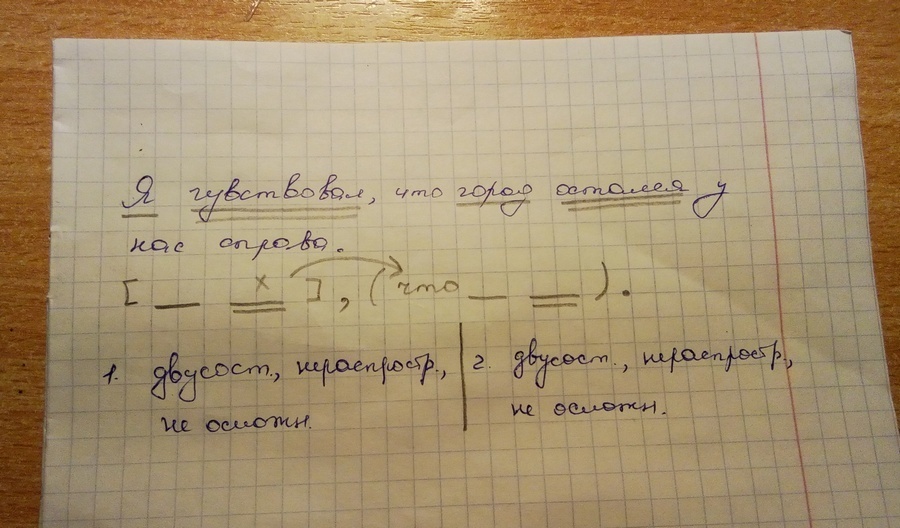 Я чувствовал, что город остался у
нас справа.
[ — = ], (что — = ).
1. двусост., нераспростр., 2. двусост., нераспростр.,
не осложн. не осложн.